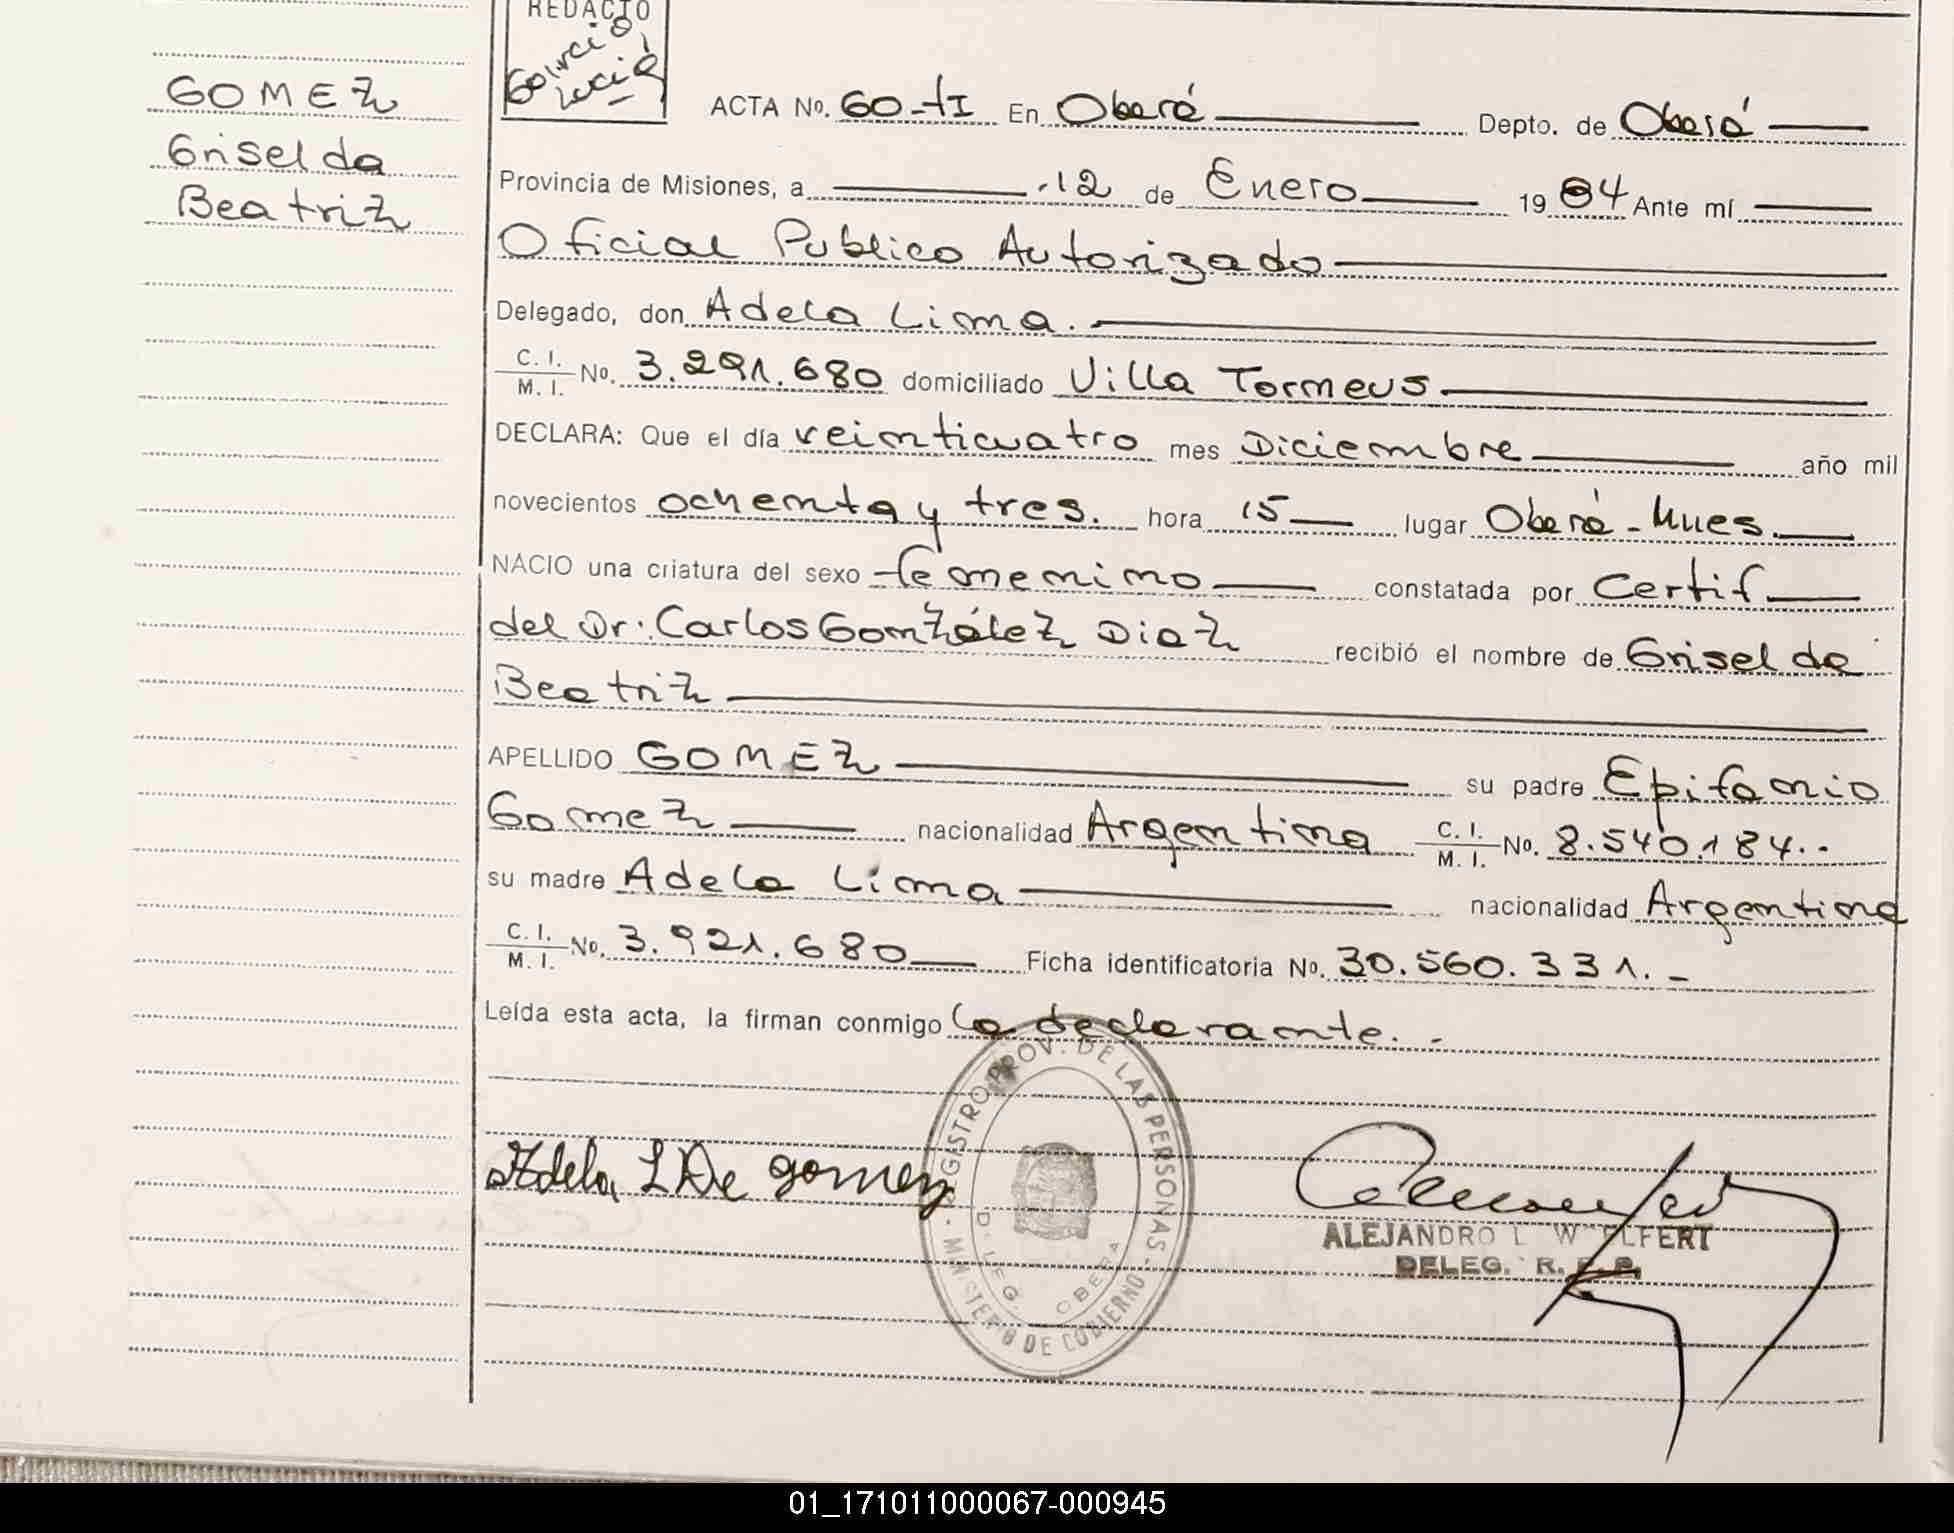 REDACTO
Garcia,
Lucia
GOMEZ
Griselda
Beatriz
ACTA No. 60-tI En Oberá Depto. de Oberá
Provincia de Misiones, a 12 de Enero 1984 Ante mí
Oficial Publico Autorizado
Delegado, don Adela Lima.
C. I. / M. I. No. 3.291.680 domiciliado Villa Tormeus
DECLARA: Que el día veinticuatro mes Diciembre año mil
novecientos ochenta y tres. hora 15 lugar Oberá-Mnes.
NACIO una criatura del sexo femenino constatada por Certif
del Dr. Carlos González Diaz recibió el nombre de Griselda
Beatriz
APELLIDO GOMEZ su padre Epifanio
Gomez nacionalidad Argentina C. I. / M. I. No. 8.540.184.-
su madre Adela Lima nacionalidad Argentina
C. I. / M. I. No. 3.921.680 Ficha identificatoria No. 30.560.331.-
Leída esta acta, la firman conmigo la declarante.-
REGISTRO PROV. DE LAS PERSONAS - MINISTERIO DE GOBIERNO -
DELEG. OBERA
Adela L De gomez
ALEJANDRO L WOLFERT
DELEG. R. P. P.
01_171011000067-000945